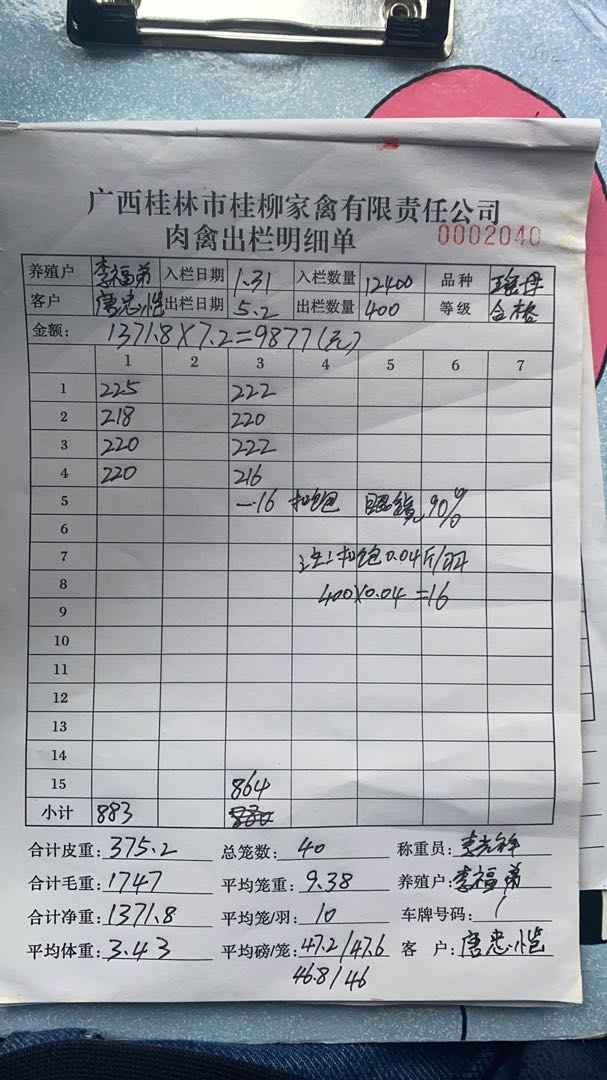 广西桂林市桂柳家禽有限责任公司
肉禽出栏明细单 0002040
养殖户 李福弟 入栏日期 1.31 入栏数量 12400 品种 瑶母
客户 唐忠恺 出栏日期 5.2 出栏数量 400 等级 合格
金额: 1371.8×7.2=9877(元)
1 2 3 4 5 6 7
1 225 222
2 218 220
3 220 222
4 220 216
5 -16 扣饱 90%
6
7 注:扣饱0.04斤/羽
8 400×0.04=16
9
10
11
12
13
14
15 864
小计 883
合计皮重: 375.2 总笼数: 40 称重员:
合计毛重: 1747 平均笼重: 9.38 养殖户: 李福弟
合计净重: 1371.8 平均笼/羽: 10 车牌号码: /
平均体重: 3.43 平均磅/笼: 47.2/47.6 客户: 唐忠恺
46.8/46